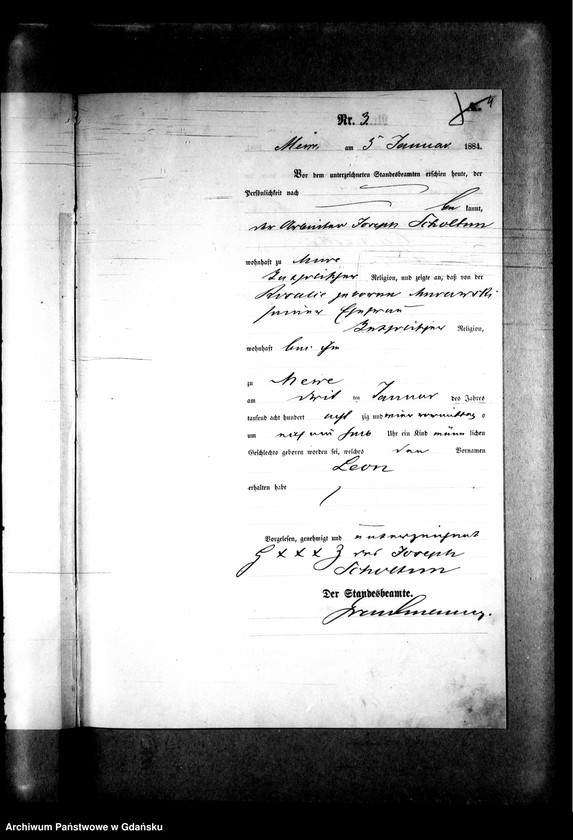 4
Nr. 3.
Mewe, am 5 Januar 1884.
Vor dem unterzeichneten Standesbeamten erschien heute, der
Persönlichkeit nach
be kannt,
der Arbeiter Joseph
wohnhaft zu Mewe
katholischer Religion, und zeigte an, daß von der
Rosalie geborenen Murawski
seiner Ehefrau
katholischer Religion,
wohnhaft bei ihm
zu Mewe
am ten Januar des Jahres
tausend acht hundert acht zig und vier vormittags
um Uhr ein Kind männ lichen
Geschlechts geboren worden sei, welches den Vornamen
Leon
erhalten habe
Vorgelesen, genehmigt und unterzeichnet
x x x des Joseph
Der Standesbeamte.
Archiwum Państwowe w Gdańsku